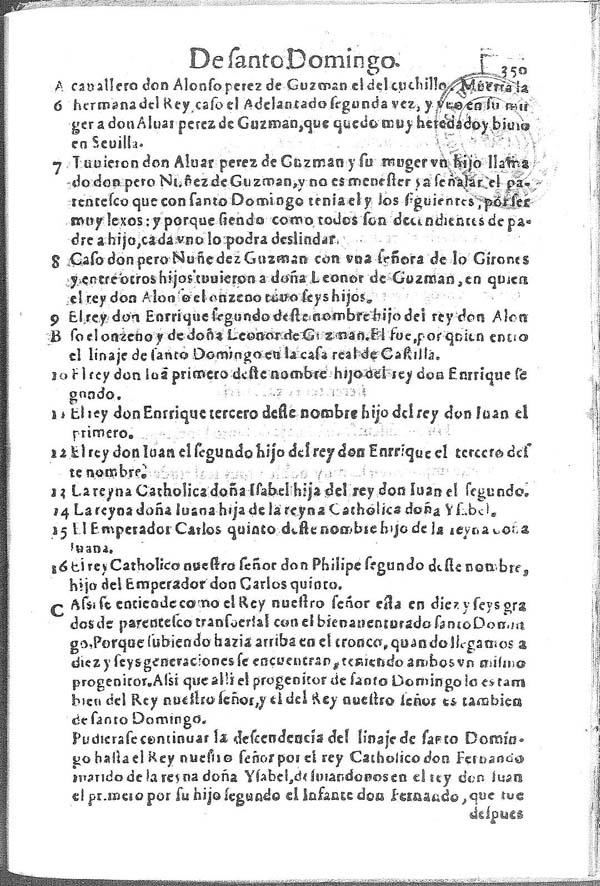 De santo Domingo.
350
A cauallero don Alonso perez de Guzman el del cuchillo. Muerta la
6 hermana del Rey, caso el Adelantado segunda vez, y vuo en su mu
ger a don Aluar perez de Guzman, que quedo muy heredado y biuio
en Seuilla.
7 Tuuieron don Aluar perez de Guzman y su muger vn hijo llama
do don pero Nuñez de Guzman, y no es menester ya señalar el pa-
rentesco que con santo Domingo tenia el y los siguientes, por ser
muy lexos: y porque siendo como todos son decendientes de pa-
dre a hijo, cada vno lo podra deslindar.
8 Caso don pero Nuñe dez Guzman con vna señora de lo Girones
y entre otros hijos tuuieron a doña Leonor de Guzman, en quien
el rey don Alonso el onzeno tuuo seys hijos.
9 El rey don Enrrique segundo deste nombre hijo del rey don Alon
B so el onzeno y de doña Leonor de Guzman. El fue, por quien entro
el linaje de santo Domingo en la casa real de Castilla.
10 El rey don Iuã primero deste nombre hijo del rey don Enrrique se
gundo.
11 El rey don Enrrique tercero deste nombre hijo del rey don Iuan el
primero.
12 El rey don Iuan el segundo hijo del rey don Enrrique el tercero des
te nombre.
13 La reyna Catholica doña Isabel hija del rey don Iuan el segundo.
14 La reyna doña Iuana hija de la reyna Catholica doña Ysabel.
15 El Emperador Carlos quinto deste nombre hijo de la reyna doña
Iuana.
16 El rey Catholico nuestro señor don Philipe segundo deste nombre,
hijo del Emperador don Carlos quinto.
C Assi se entiende como el Rey nuestro señor esta en diez y seys gra
dos de parentesco transuersal con el bienauenturado santo Domin
go. Porque subiendo hazia arriba en el tronco, quando llegamos a
diez y seys generaciones se encuentran, teniendo ambos vn mismo
progenitor. Assi que alli el progenitor de santo Domingo lo es tam
bien del Rey nuestro señor, y el del Rey nuestro señor es tambien
de santo Domingo.
Pudierase continuar la descendencia del linaje de santo Domin-
go hasta el Rey nuestro señor por el rey Catholico don Fernando
marido de la reyna doña Ysabel, desuiandonos en el rey don Iuan
el primero por su hijo segundo el Infante don Fernando, que fue
despues